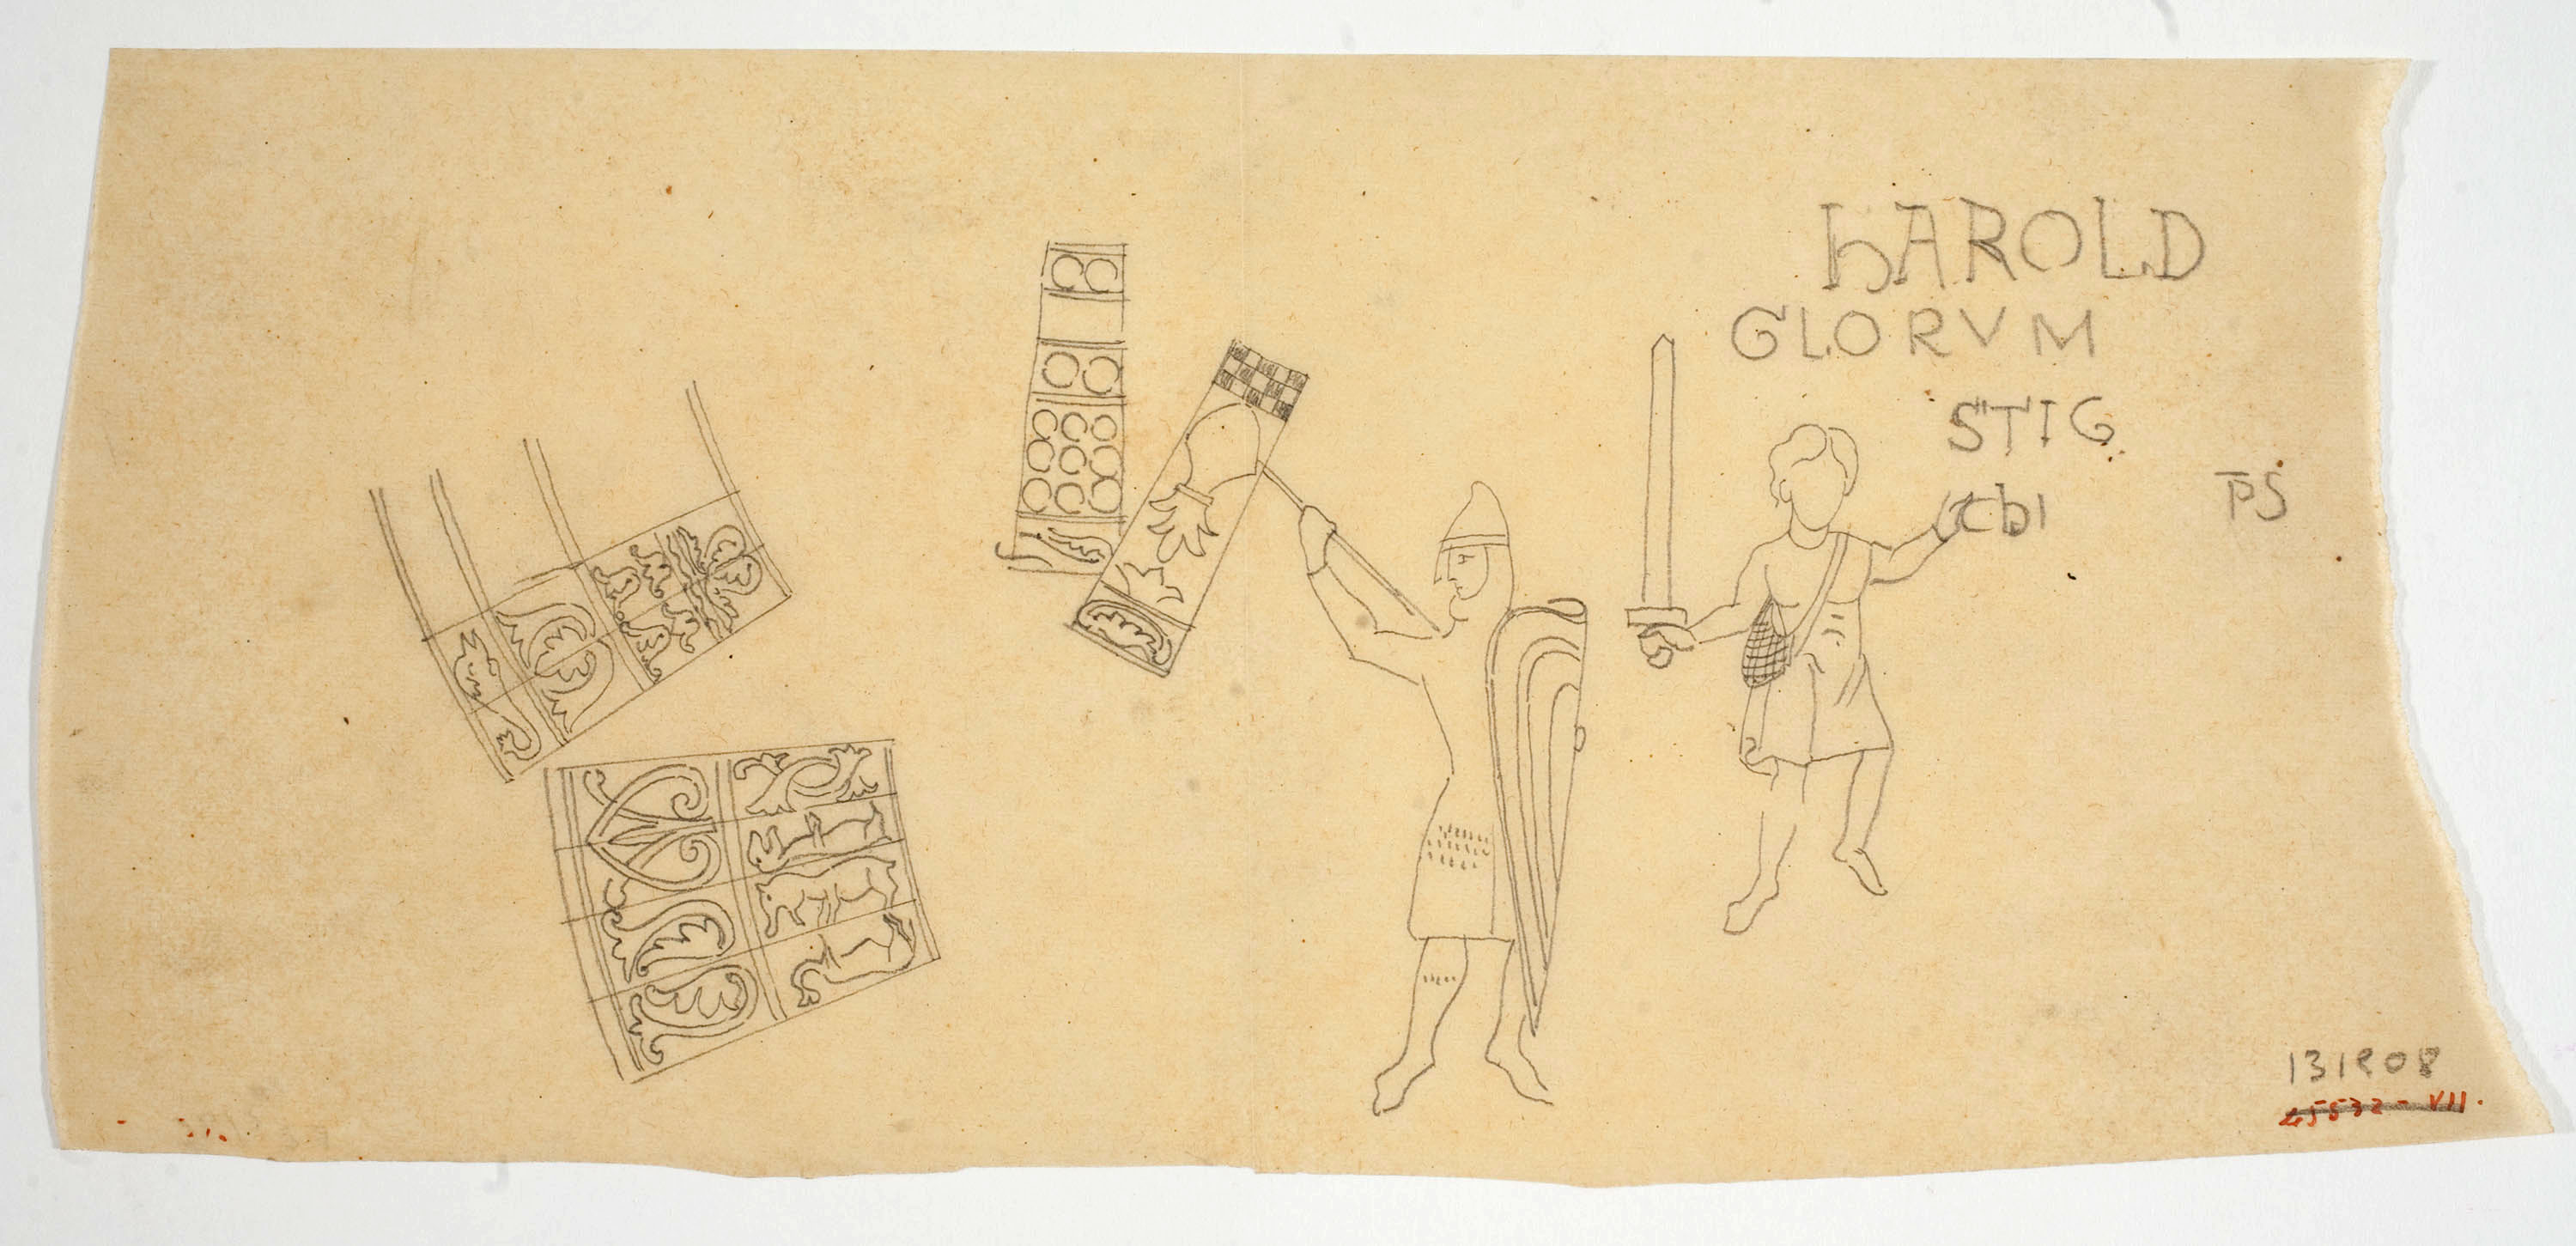 HAROLD
GLORVM
STIG
cbI
PS
131908
45532-VII.